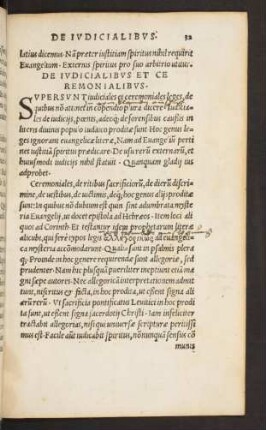 DE IVDICIALIBVS. 52
latius dicemus. Nā preter iustitiam spiritus nihil requirit
Euangelium. Externis spiritus pro suo arbitrio utitur.
DE IVDICIALIBVS ET CE
REMONIALIBVS.
SVPERSVNT iudiciales et ceremoniales leges, de
quibus nō attinet in cōpendio plura dicere. Iudicia
les de iudicijs, pœnis, adeoq; de forensibus causis in
literis diuinis populo iudaico proditæ sunt. Hoc genus le
ges ignorant euangelicæ literæ, Nam ad Euangelij perti
net iustitiam spiritus prædicare. De usu rerū externarū, et
huiusmodi iudicijs nihil statuit. Quanquam gladij usum
adprobet.
Ceremoniales, de ritibus sacrificiorū, de dierū discrimi
ne, de uestibus, de uictimis, deq; hoc genus alijs proditæ
sunt: In quibus nō dubium est quin sint adumbrata myste
ria Euangelij, ut docet epistola ad Hebræos. Item loci ali
quot ad Corinth. Et testantur idem prophetarum literæ
alicubi, qui ferè typos legis
ca mysteria accōmodarunt. Qualia sunt in psalmis plera
q;. Proinde in hoc genere requirendæ sunt allegoriæ, sed
prudenter. Nam hic plusquā pueriliter ineptiunt etiā ma
gni sæpe autores. Nec allegoricā interpretationem admit
tunt, nisi ritus et facta, in hoc prodita, ut essent signa ali
arū rerū. Vt sacrificia pontificatus Leuitici in hoc prodi
ta sunt, ut essent signa sacerdotij Christi. Iam infeliciter
tractabit allegorias, nisi qui uniuersæ scripturæ peritissi
mus est. Facile autē iudicabit spiritus, nōnunquā sensus cō
munis